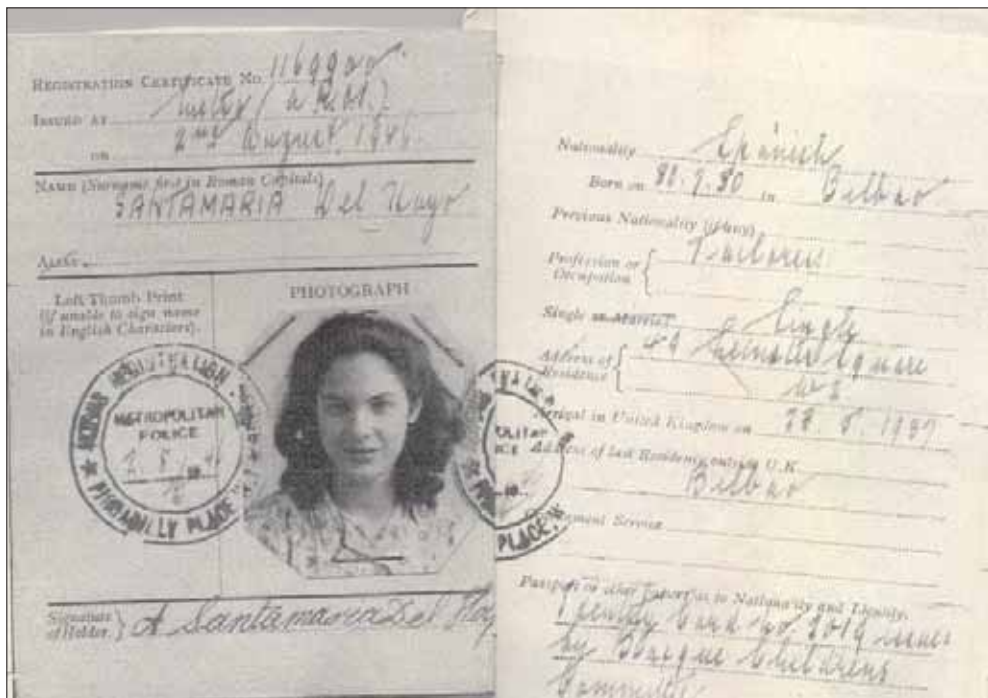 REGISTRATION CERTIFICATE No. 1169900
ISSUED AT
ON 2nd August 1946
NAME (Surname first in Roman Capitals)
SANTAMARIA Del
ALIAS
Left Thumb Print
(if unable to sign name
in English Characters).
PHOTOGRAPH
ALIENS REGISTRATION
METROPOLITAN
POLICE
PICCADILLY PLACE
Signature
of Holder. A Santamaria Del
Nationality Spanish
Born on in Bilbao
Previous Nationality (if any)
Profession or
Occupation
Single or Married Single
Address of
Residence Square
Arrival in United Kingdom on 1937
Address of last Residence outside U.K.
Bilbao
Service
PLACE
Passport or other papers as to Nationality and Identity.
Identity Card no. 2019 issued
by Basque Childrens
Committee